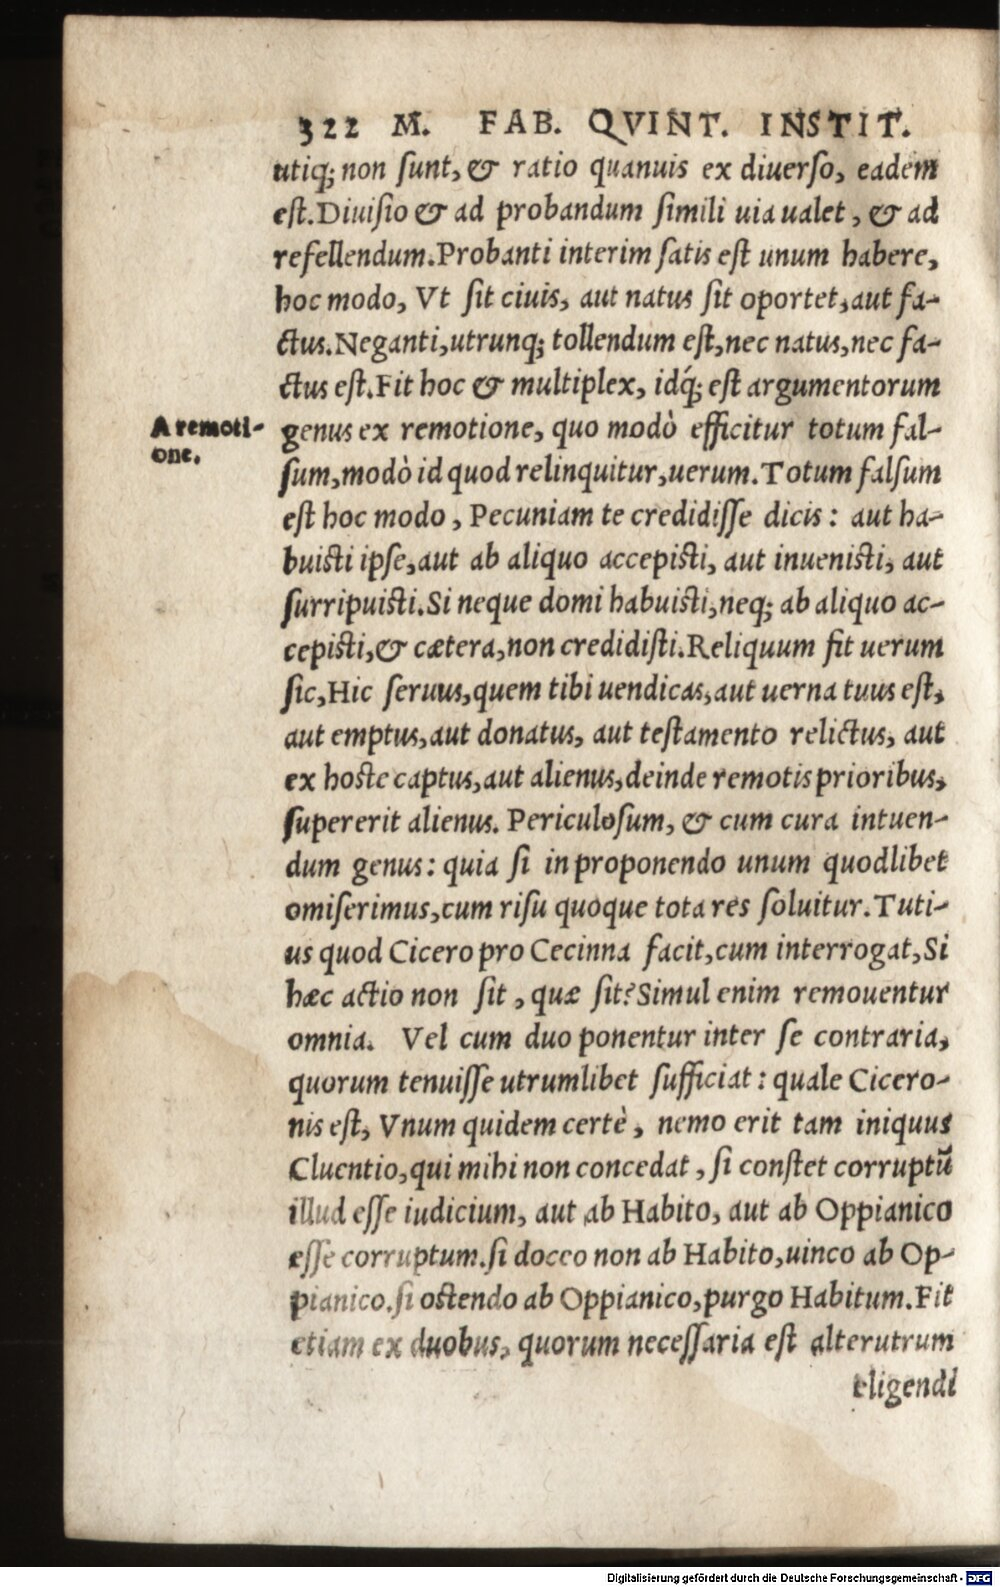 322 M. FAB. QVINT. INSTIT.
utiq; non ſunt, & ratio quanuis ex diuerſo, eadem
eſt. Diuiſio & ad probandum ſimili uia ualet, & ad
refellendum. Probanti interim ſatis eſt unum habere,
hoc modo, Vt ſit ciuis, aut natus ſit oportet, aut fa-
ctus. Neganti, utrunq; tollendum eſt, nec natus, nec fa-
ctus eſt. Fit hoc & multiplex, idq́; eſt argumentorum
A remoti-
one.
genus ex remotione, quo modò efficitur totum fal-
ſum, modò id quod relinquitur, uerum. Totum falſum
eſt hoc modo, Pecuniam te credidiſſe dicis: aut ha-
buiſti ipſe, aut ab aliquo accepiſti, aut inueniſti, aut
ſurripuiſti. Si neque domi habuiſti, neq; ab aliquo ac-
cepiſti, & cætera, non credidiſti. Reliquum fit uerum
ſic, Hic ſeruus, quem tibi uendicas, aut uerna tuus eſt,
aut emptus, aut donatus, aut teſtamento relictus, aut
ex hoſte captus, aut alienus, deinde remotis prioribus,
ſupererit alienus. Periculoſum, & cum cura intuen-
dum genus: quia ſi in proponendo unum quodlibet
omiſerimus, cum riſu quoque tota res ſoluitur. Tuti-
us quod Cicero pro Cecinna facit, cum interrogat, Si
hæc actio non ſit, quæ ſit? Simul enim remouentur
omnia. Vel cum duo ponentur inter ſe contraria,
quorum tenuiſſe utrumlibet ſufficiat: quale Cicero-
nis eſt, Vnum quidem certè, nemo erit tam iniquus
Cluentio, qui mihi non concedat, ſi conſtet corruptū
illud eſſe iudicium, aut ab Habito, aut ab Oppianico
eſſe corruptum. ſi doceo non ab Habito, uinco ab Op-
pianico. ſi oſtendo ab Oppianico, purgo Habitum. Fit
etiam ex duobus, quorum neceſſaria eſt alterutrum
eligendi
Digitalisierung gefördert durch die Deutsche Forschungsgemeinschaft - DFG